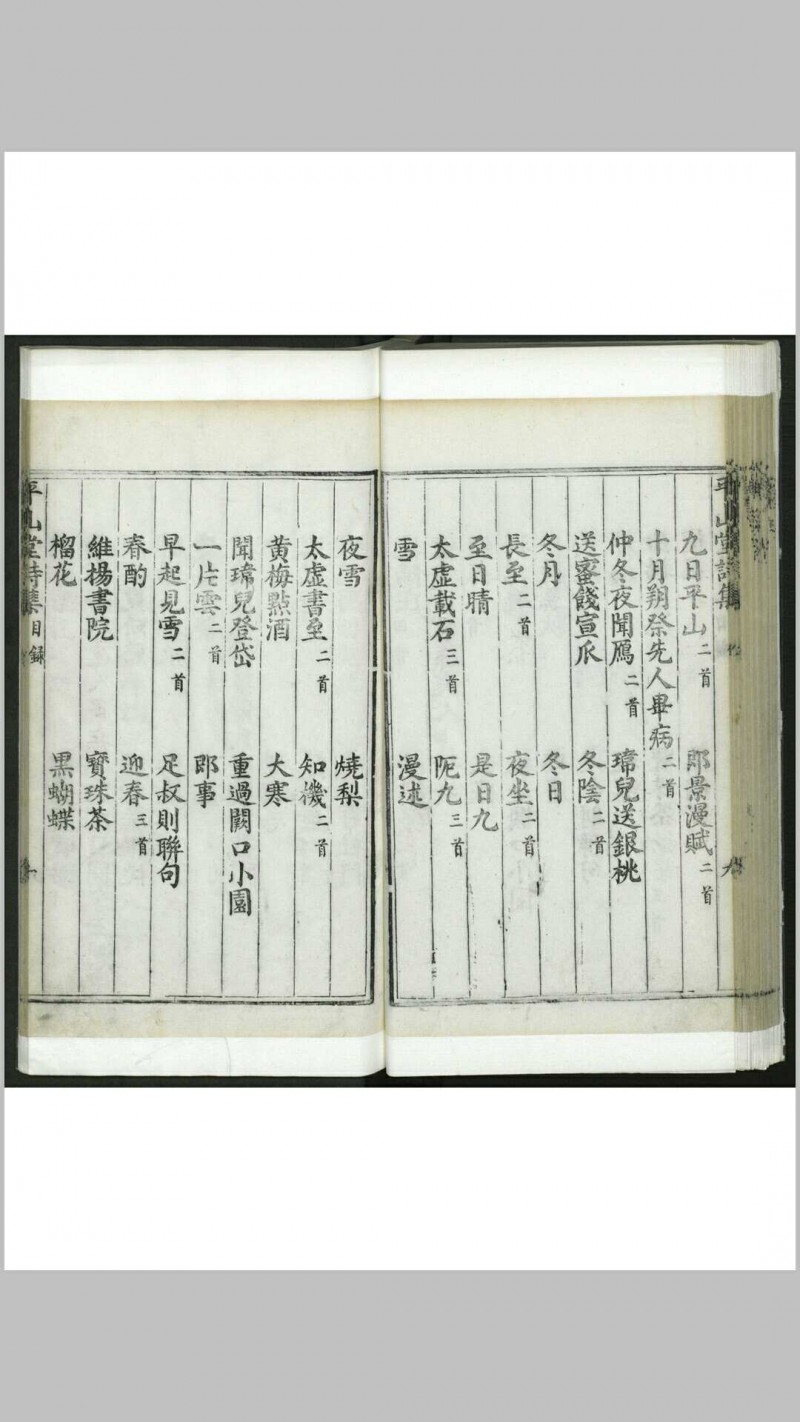 平山堂詩集
九日平山二首 即景漫賦二首
十月翔祭先人畢病二首
仲冬夜聞鴈二首 瑋兒送銀桃
送蜜餞宣瓜 冬陰二首
冬月 冬日
長至二首 夜坐二首
至日晴 是日九
太虛載石三首 阨九三首
雪 漫述
夜雪 燒梨
太虛書至二首 知機二首
黃梅點酒 大寒
聞瑋兒登岱 重過闕口小園
一片雲二首 即事
早起見雪二首 足叔則聯句
春酌 迎春三首
維揚書院 寶珠茶
榴花 黑蝴蝶
平山堂詩集 目錄